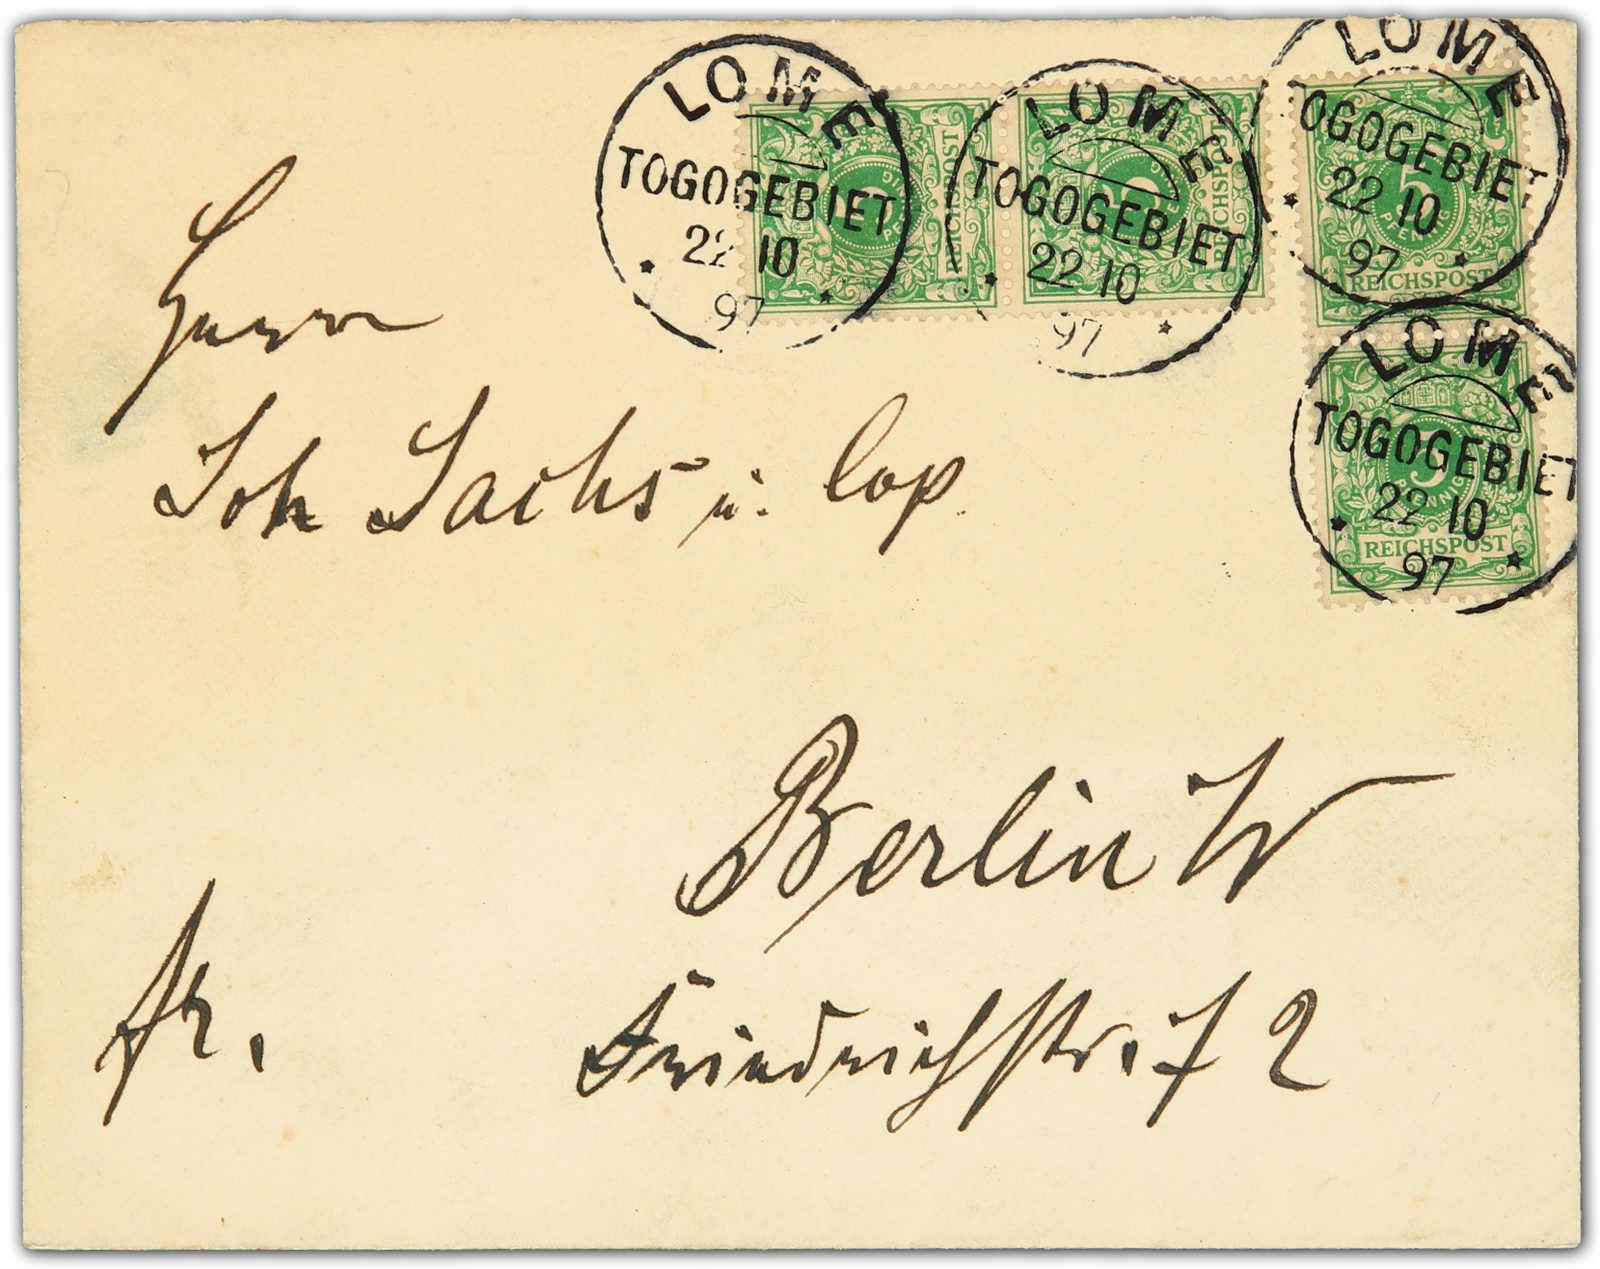 LOME
TOGOGEBIET
22 10
97
LOME
TOGOGEBIET
22 10
97
LOME
TOGOGEBIET
22 10
97
5
REICHSPOST
LOME
TOGOGEBIET
22 10
97
5
REICHSPOST
REICHSPOST
REICHSPOST
Herrn
Joh Sachs u. Cop.
Berlin W
fr.
Friedrichstr. 72